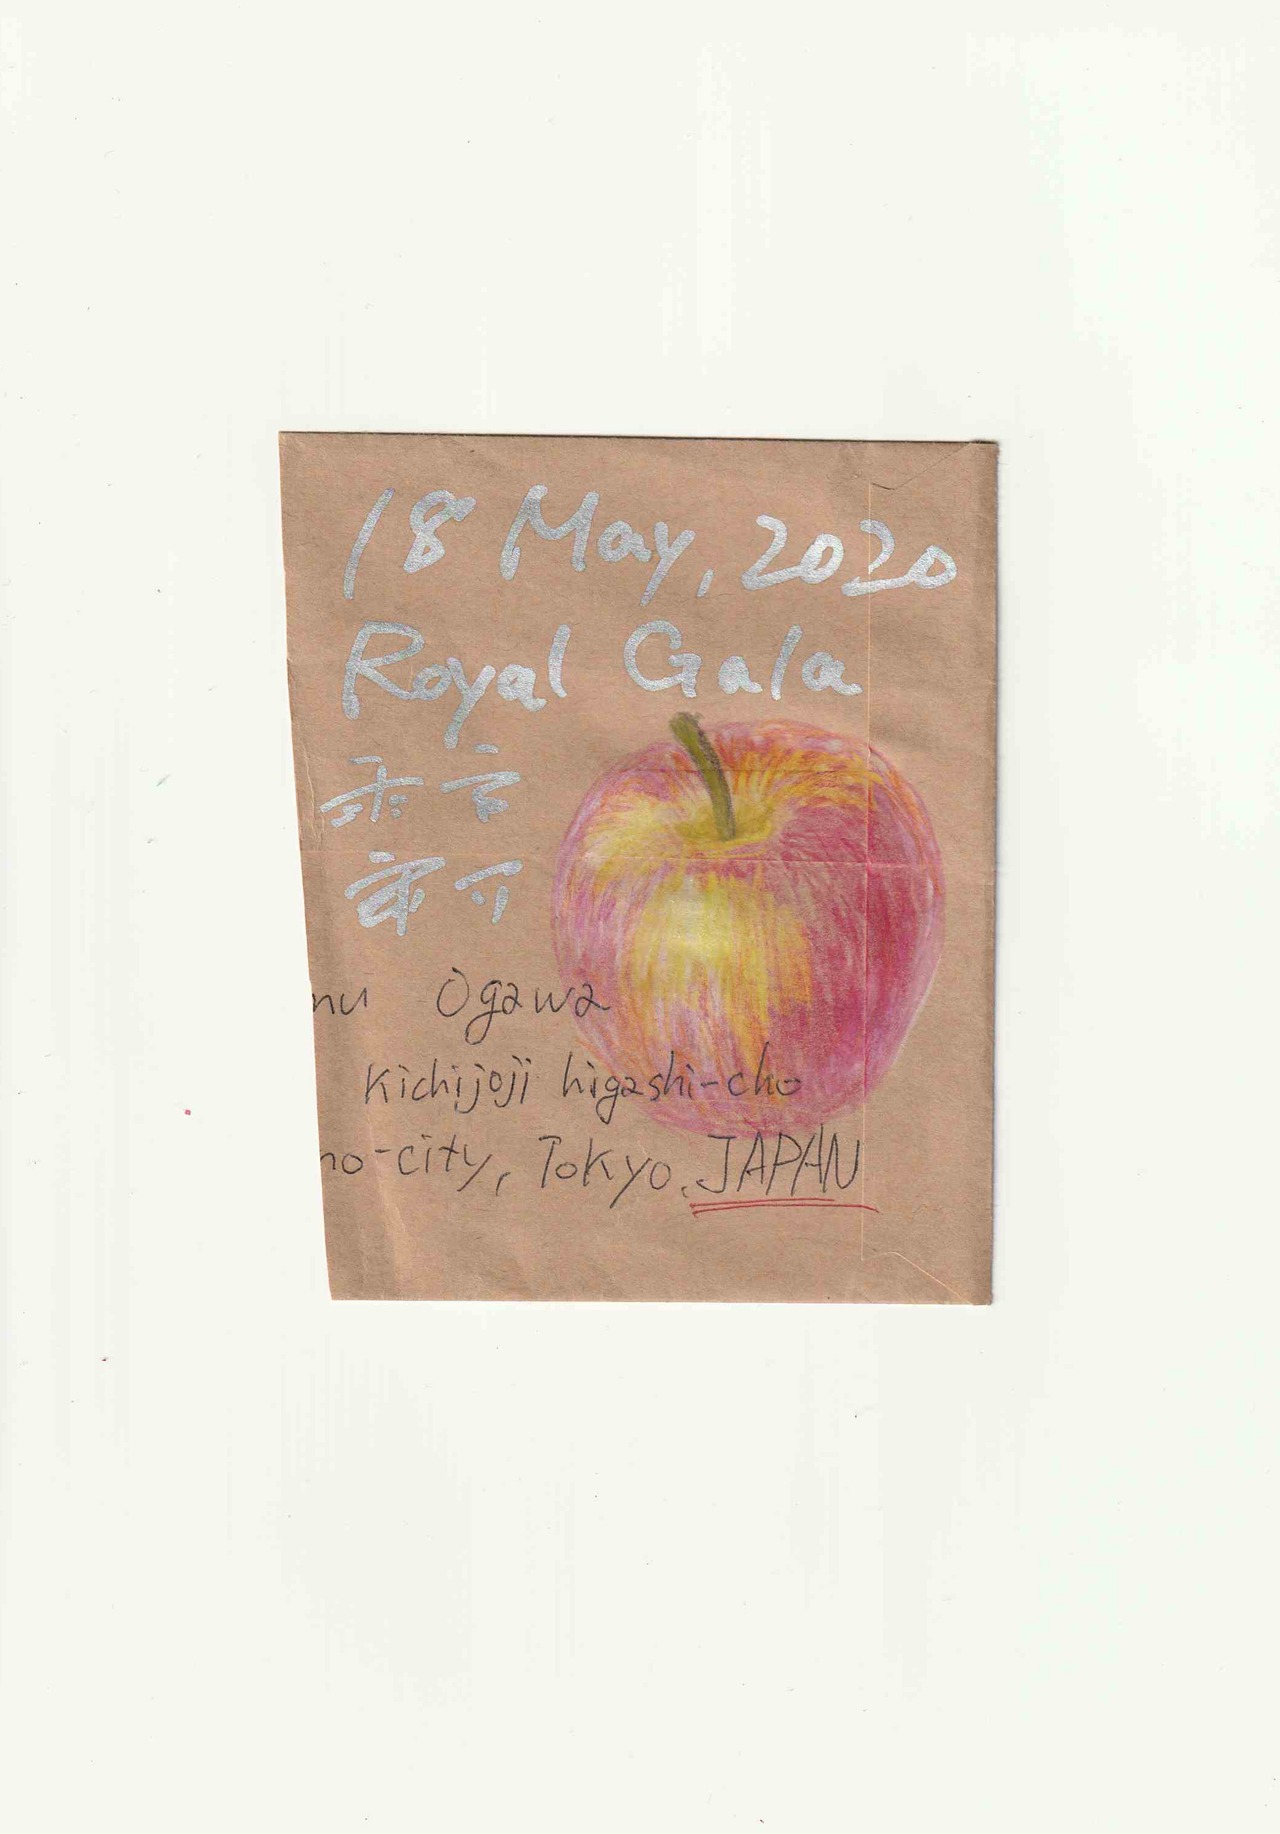 18 May, 2020
Royal Gala
nu Ogawa
Kichijoji higashi-cho
no-city, Tokyo, JAPAN